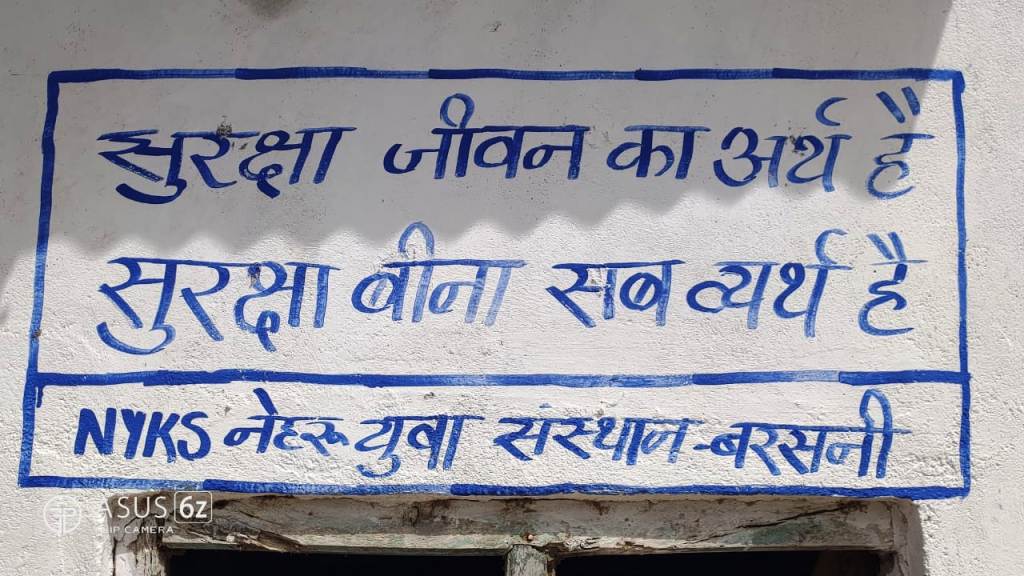 सुरक्षा जीवन का अर्थ है
सुरक्षा बीना सब व्यर्थ है
NYKS नेहरू युबा संस्थान-बरसनी
ASUS 6Z
TRIP CAMERA